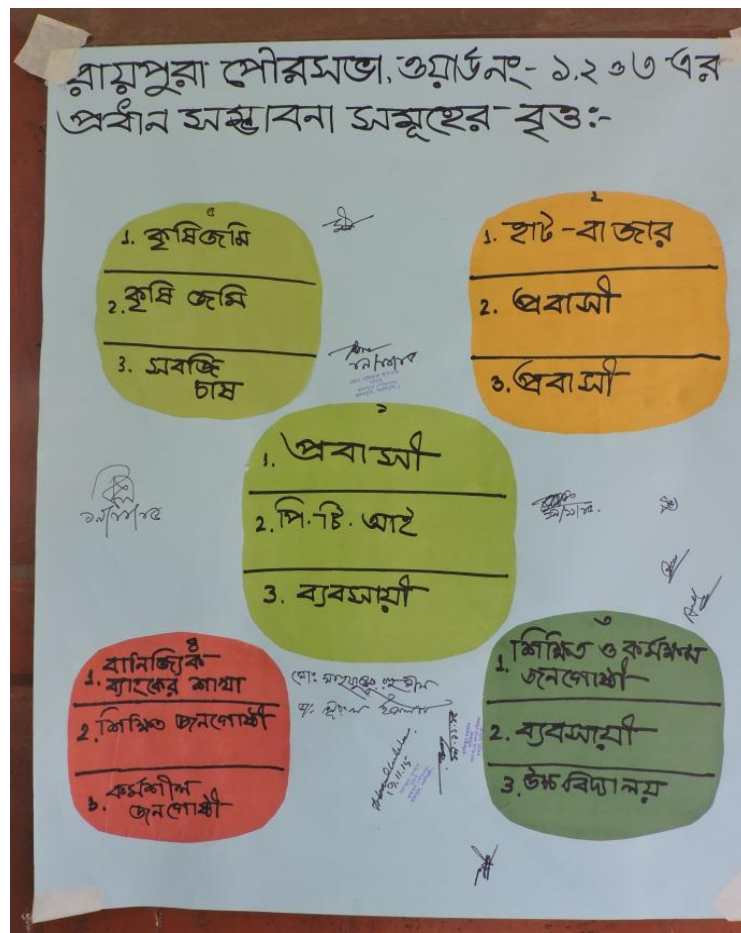 রায়পুরা পৌরসভা, ওয়ার্ড নং- ১,২ ও ৩ এর
প্রধান সম্ভাবনা সমূহের বৃত্ত:-
৫
1. কৃষিজমি
2. কৃষি জমি
3. সবজি
চাষ
২
1. হাট-বাজার
2. প্রবাসী
3. প্রবাসী
১
1. প্রবাসী
2. পি.টি.আই
3. ব্যবসায়ী
৪
1. বানিজ্যিক
ব্যাংকের শাখা
2. শিক্ষিত জনগোষ্ঠী
3. কর্মশীল
জনগোষ্ঠী
৩
1. শিক্ষিত ও কর্মক্ষম
জনগোষ্ঠী
2. ব্যবসায়ী
3. উচ্চ বিদ্যালয়
19.11.15